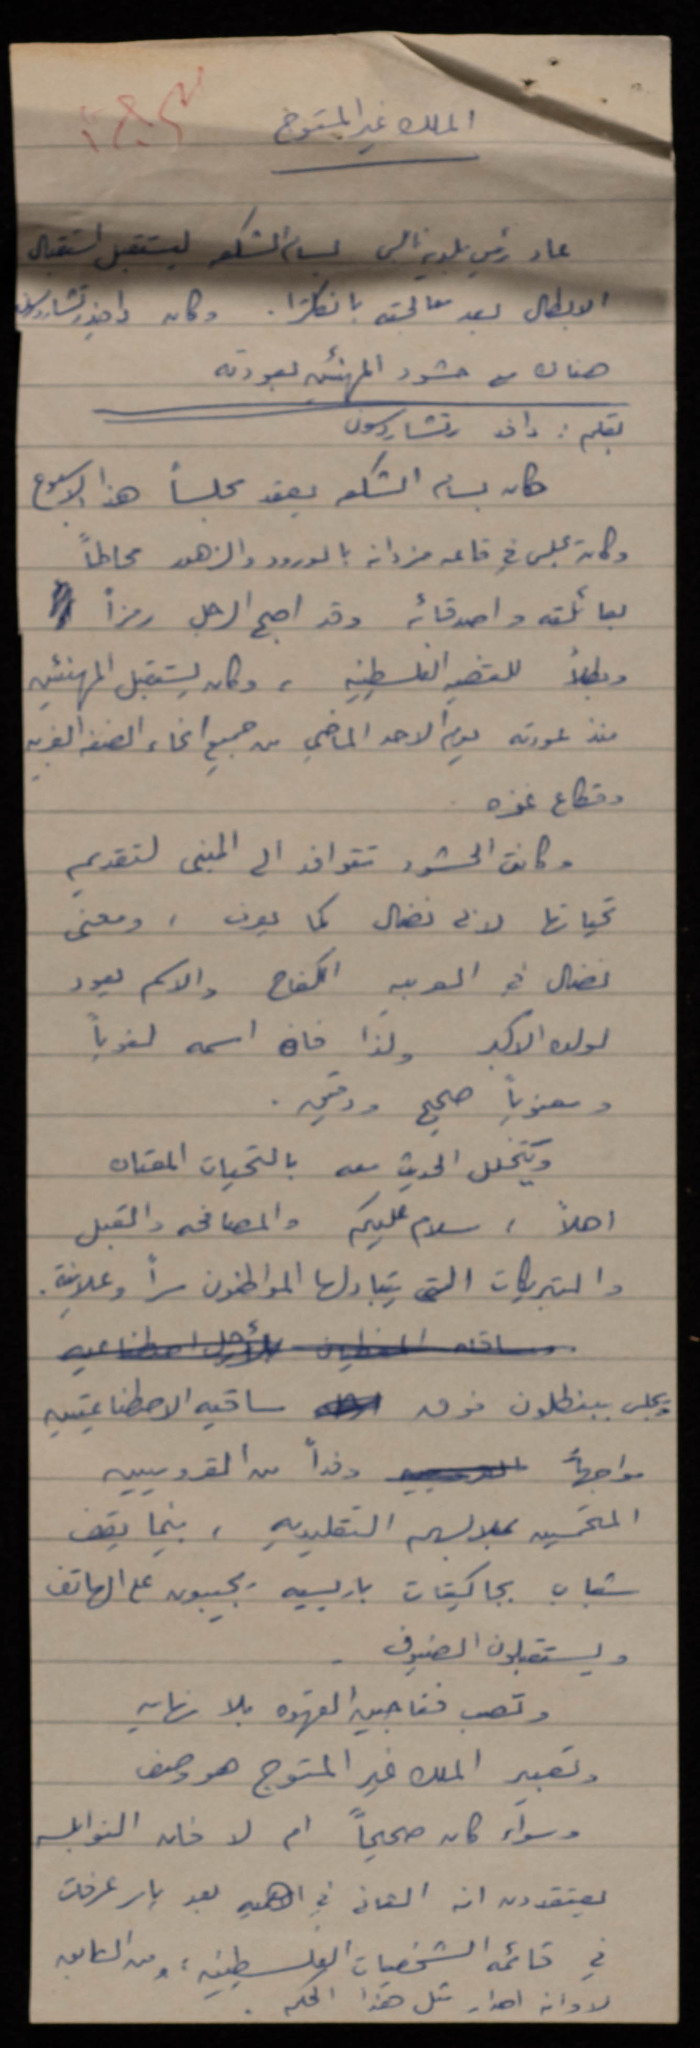 الملك غير المتوج
عاد رئيس بلدية نابلس بسام الشكعه ليستقبل استقبال
الابطال بعد معالجته بانكلترا. وكان دافيد رتشاردسون
هناك مع حشود المهنئين بعودته
بقلم: دافد رتشاردسون
كان بسام الشكعه يعقد مجلساً هذا الاسبوع
وكان يجلس في قاعه مزدانه بالورود والزهور محاطاً
بعائلته واصدقائه وقد اصبح الرجل رمزاً
وبطلاً للقضيه الفلسطينيه، وكان يستقبل المهنئين
منذ عودته يوم الاحد الماضي من جميع انحاء الضفه الغربيه
وقطاع غزه
وكانت الحشود تتوافد الى المبنى لتقديم
تحياتها لابي نضال كما يعرف، ومعنى
نضال في العربيه الكفاح والاسم يعود
لولده الاكبر ولذا فان اسمه لغوياً
ومعنوياً صحيح ودقيق.
ويتخلل الحديث معه بالتحيات المعتاده
اهلاً، سلام عليكم والمصافحه والقبل
والتبريكات التي يتبادلها المواطنون سراً وعلانية.
يجلس ببنطلون فوق ساقيه الاصطناعيتين
مواجهاً وفداً من القرويين
المتحمسين بملابسهم التقليديه، بينما يقف
شباب بجاكيتات باريسيه يجيبون على الهاتف
ويستقبلون الضيوف.
وتصب فناجين القهوه بلا نهايه
وتعبير الملك غير المتوج هو وصف
وسواء كان صحيحاً ام لا فان النوابلسه
يعتقدون انه الثاني في الاهميه بعد ياسر عرفات
في قائمه الشخصيات الفلسطينيه، ومن السابق
لاوانه اصدار مثل هذا الحكم.